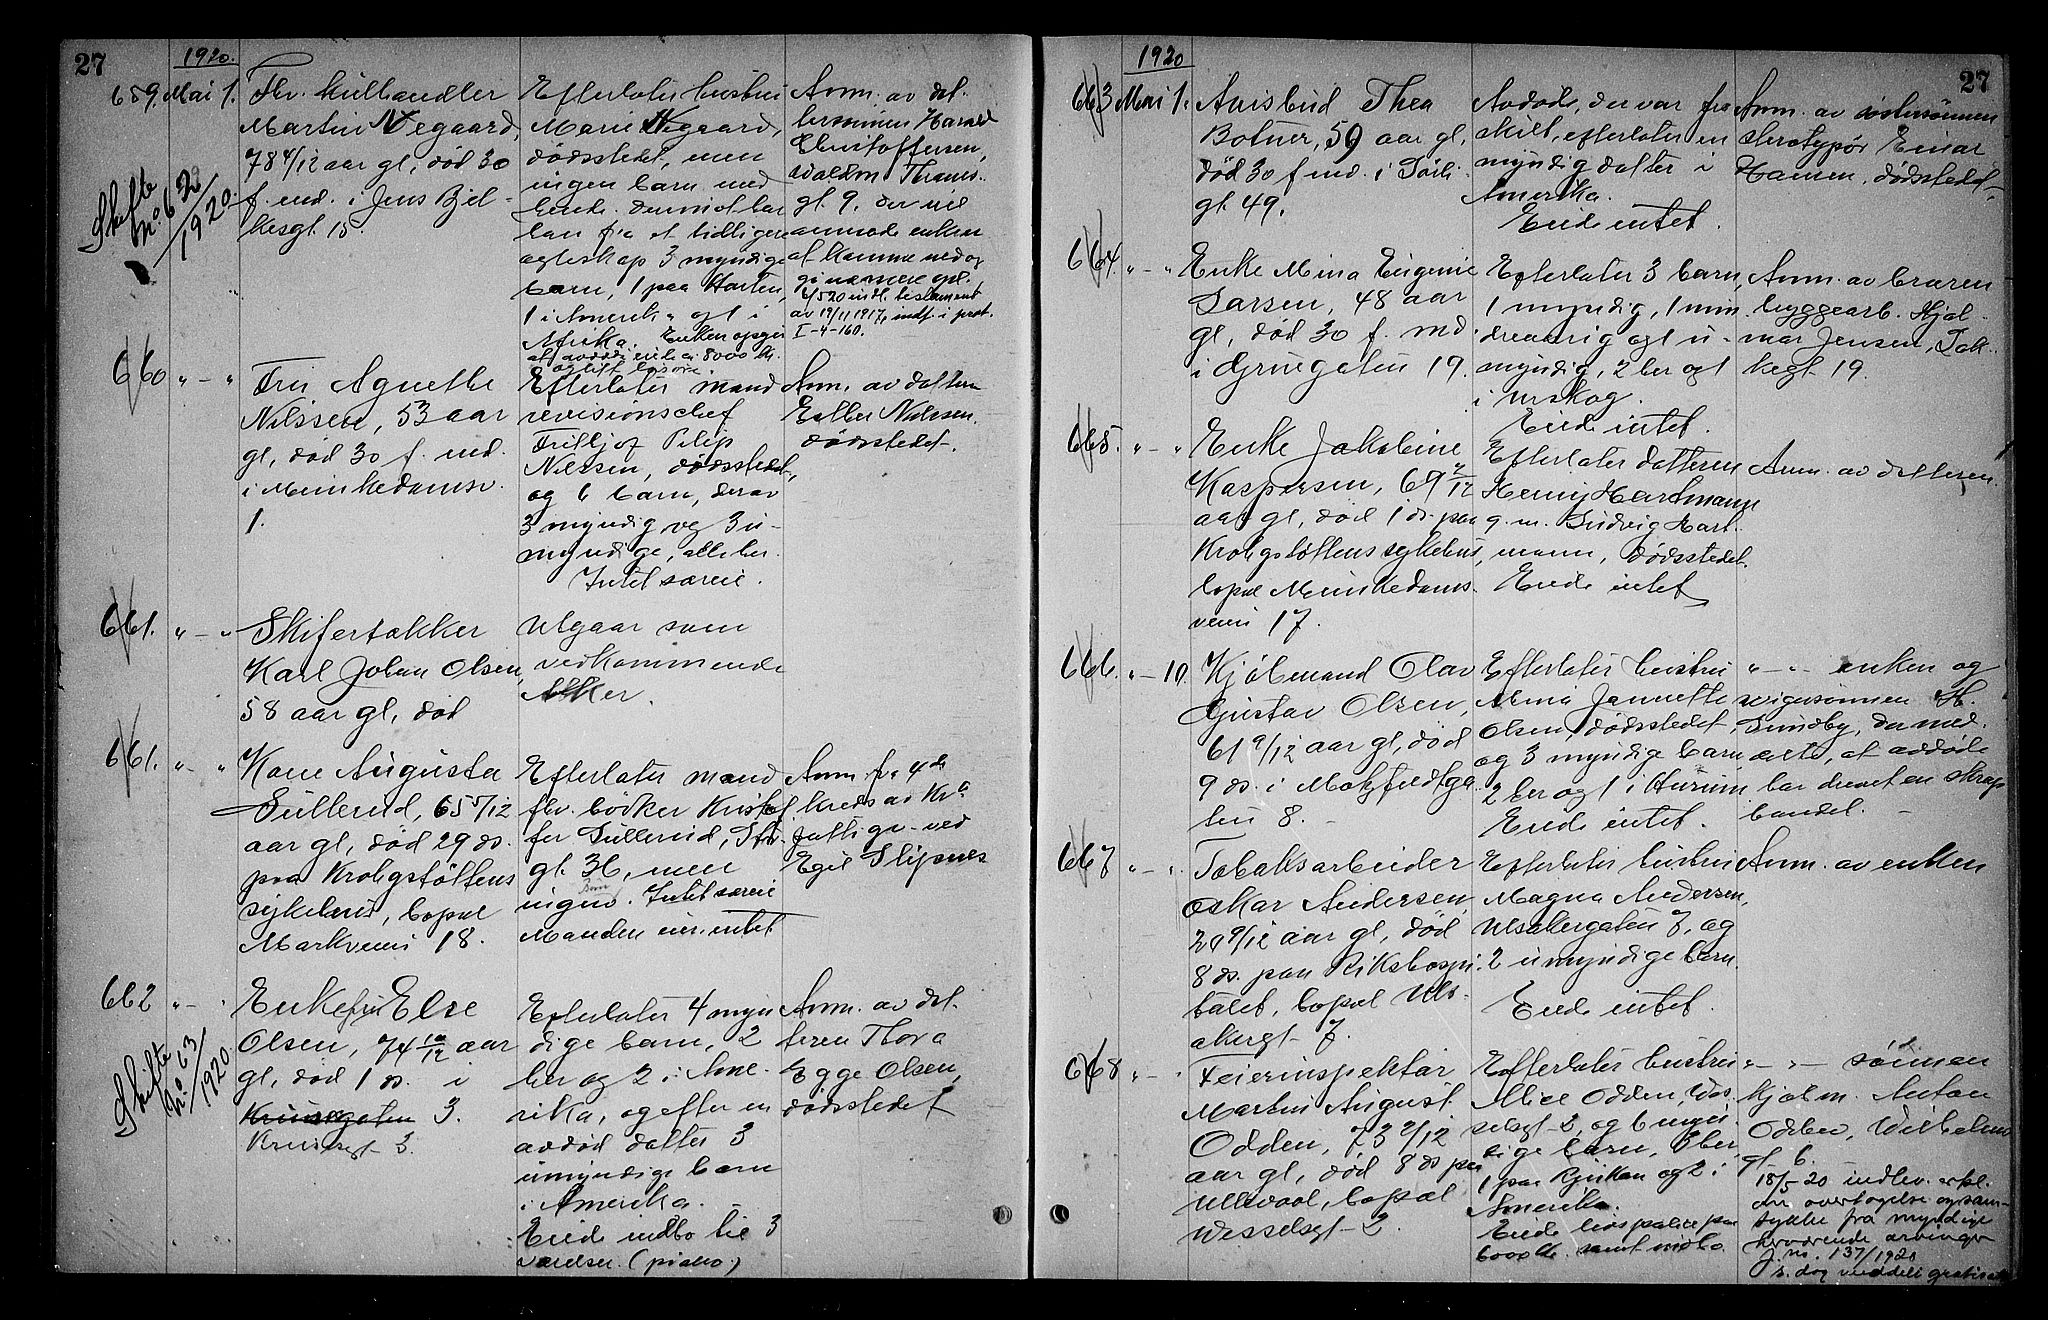 27
1920.
659. Mai 1.
Fhv. kulhandler
Martin Negaard,
78 4/12 aar gl, død 30
f. md. i Jens Bjel-
kesgt. 15.
Skifte
No 62
/1920.
Efterlater hustru
Marie Negaard,
dødsstedet, men
ingen barn med
hende. Derimot har
han fra et tidligere
egteskap 3 myndige
barn, 1 paa Hamar,
1 i Amerika og 1 i
Afrika. Enken opgir
at avdøde eide ca. 8000 kr.
og litt løsøre.
Anm. av dat-
tersønnen Harald
Christoffersen,
Waldem. Thranes-
gt. 9. der vil
anmode enken
at komme ned og
gi nærmere opl.
4/5 20 indl. testament
av 19/11 1917, indf. i prot.
I-4-160.
660 " - "
Fru Agnethe
Nilssen, 53 aar
gl, død 30 f. md.
i Munkedamsv.
1.
Efterlater mand
revisionschef
Fritljof Pilip
Nilssen, dødsstedet,
og 6 barn, derav
3 myndig og 3 u-
myndige, alle her.
Intet særeie.
Anm. av datteren
Esther Nilssen.
dødsstedet.
661. " - "
Skifertækker
Karl Johan Olsen,
58 aar gl, død
Utgaar som
vedkommende
Aker.
661. " - "
Kone Augusta
Sullerud, 65 5/12
aar gl, død 29 ds.
paa Krohgstøttens
sykehus, bopæl
Markveien 18.
Efterlater mand
fhv. bøker Kristof
fer Sullerud, Sto.
gt. 36, men
Barn
ingen. Intet særeie
Manden eier intet
Anm. fra 4de
kreds av Kra.
fattigv. ved
Egil Slipsnes
662 " - "
Enkefru Else
Olsen, 74 10/12 aar
gl, død 1 ds. i
Krusesgaten 3.
Krusesgt. 3.
Skifte
No. 63
/1920.
Efterlater 4 myn
dige barn, 2
her og 2 i Ame-
rika, og efter en
avdød datter 3
umyndige barn
i Amerika.
Eiede indbo til 3
værelser. (piano)
Anm. av dat-
teren Thora
Egge Olsen,
dødsstedet
1920
27
663 Mai 1.
Anisbud Thea
Botner, 59 aar gl,
død 30 f md. i Sørli-
gt. 49.
Avdøde, der var fra
skilt, efterlater en
myndig datter i
Amerika.
Eiede intet.
Anm. av søstersønnen
sterotypør Einar
Hansen, dødsstedet
664. " - "
Enke Mina Eugenie
Larsen, 48 aar
gl, død 30 f. md.
i Grünegaten 19.
Efterlater 3 barn,
1 myndig, 1 min
dreaarig og 1 u-
myndig, 2 her og 1
i Urskog.
Eiede intet.
Anm. av broren
byggearb. Hjal-
mar Jensen, Tøi-
kegt. 19.
665. " - "
Enke Jakobine
Kaspersen, 69 2/12
aar gl, død 1 ds. paa
Krohgstøttens sykehus,
bopæl Munkedams-
veien 17.
Efterlater datteren
Henny Hartmann
g. m. Ludvig Hart-
mann, dødsstedet.
Eiede intet
Anm. av datteren.
666. " - 10.
Kjøbmand Olav
Gustav Olsen,
61 9/12 aar gl, død
9 ds. i Motzfeldtga
ten 8.
Efterlater hustru
Anna Jannette
Olsen, dødsstedet,
og 3 myndige barn
2 her og 1 i Hurum
Eiede intet.
" - " enken og
svigersønnen H.
Sundby, der med-
delte, at avdøde
har drevet en skrap
handel.
667 " - "
Tobaksarbeider
Oskar Andersen,
29 9/12 aar gl, død
8 ds. paa Rikshospi-
talet, bopæl Uls-
akergt. 7.
Efterlater hustru
Magna Andersen,
Ulsakergaten 7, og
2 umyndige barn.
Eiede intet.
Anm. av enken
668 " - "
Feierinspektør
Martin August
Odden, 73 2/12
aar gl, død 8 ds paa
Ullevaal, bopæl
Wesselsgt. 2.
Efterlater hustru
Alice Odden, Wes
selsgt. 2, og 6 myn-
dige barn, 3 her,
1 paa Rjukan og 2 i
Amerika.
Eiede livspolice paa
6000 kr. samt indbo
" - " sønnen
kjølm. Anton
Odden, Wilhelms
gt. 6.
18/5 20 indlev. erkl.
om overtagelse og sam-
tykke fra myndige
herværende arvinger
J. no. 137/1920
s. dag meddelt gratis